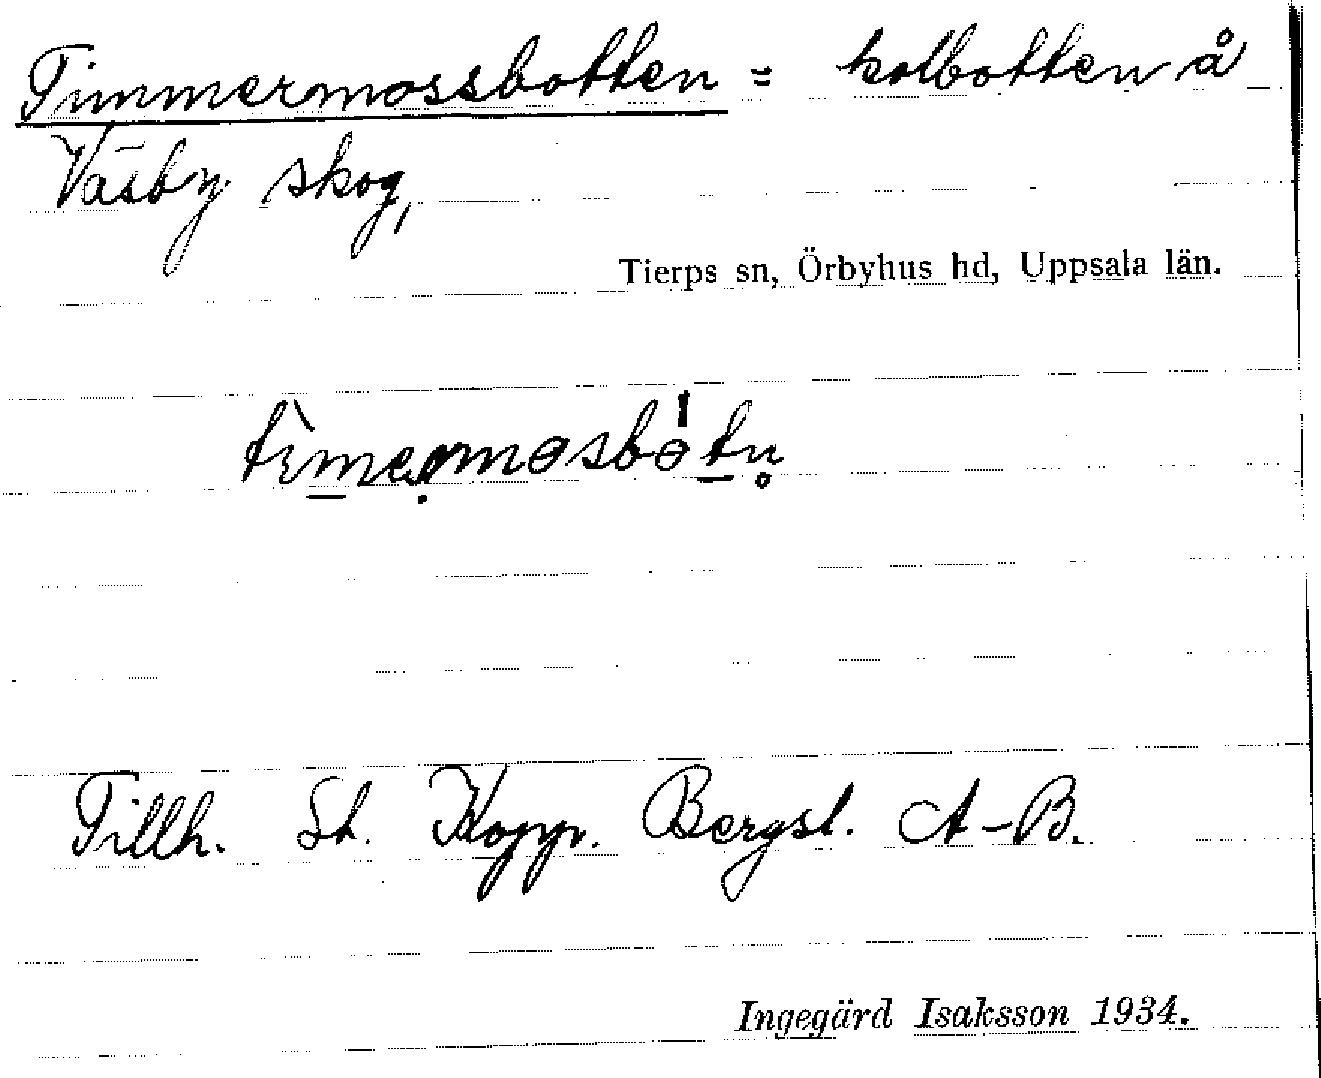 Timmermossbotten = kolbotten å
Väsby skog,
Tierps sn, Örbyhus hd, Uppsala län.
Tillh. St. Kopp. Bergsl. A-B.
Ingegärd Isaksson 1934.